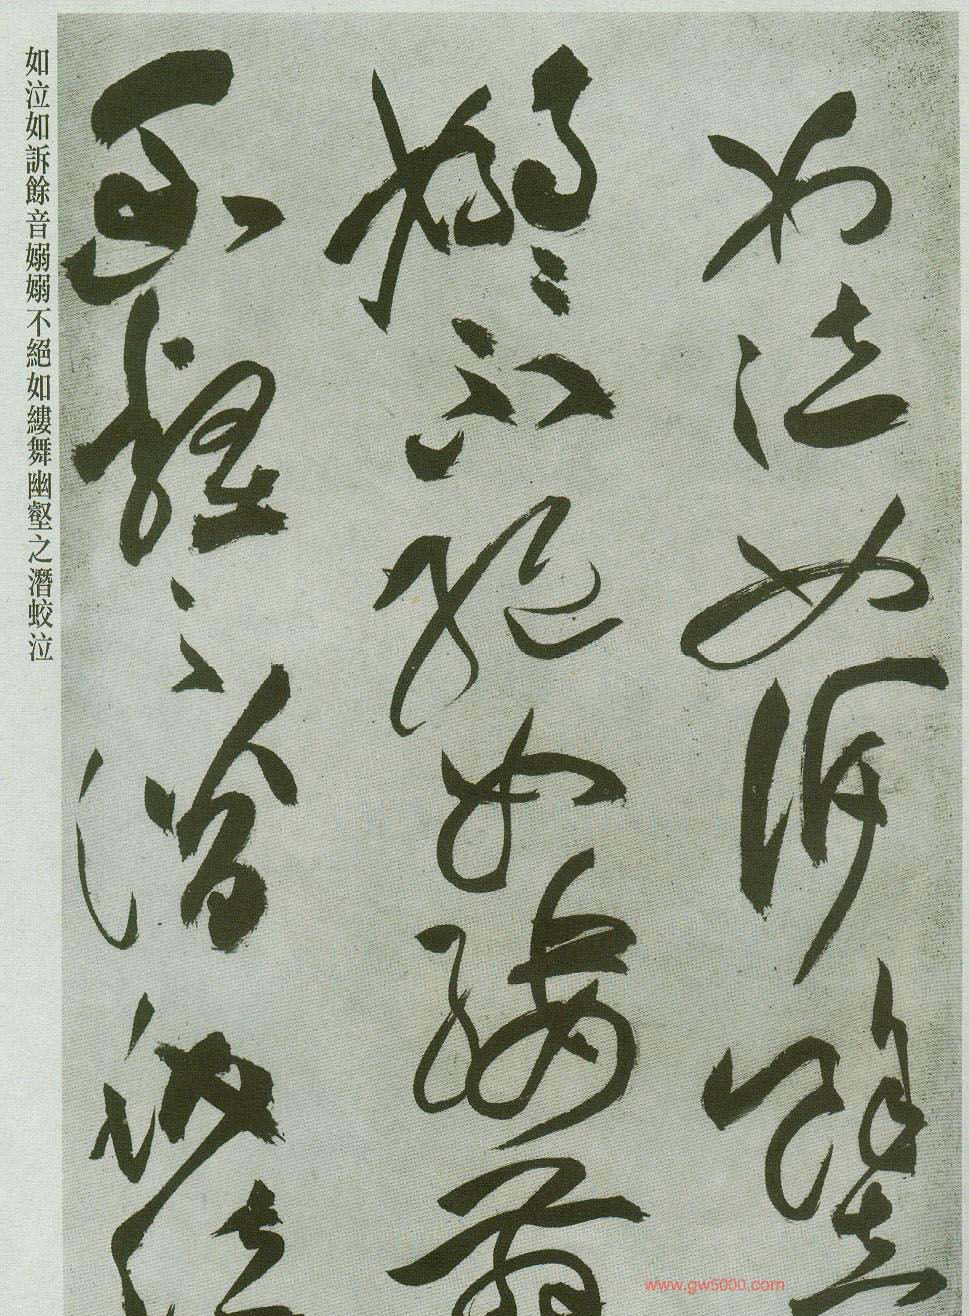 如泣如訴餘音
嫋〻不絕如縷舞
幽壑之潛蛟泣
如泣如訴餘音嫋嫋不絕如縷舞幽壑之潛蛟泣
www.gw5000.com